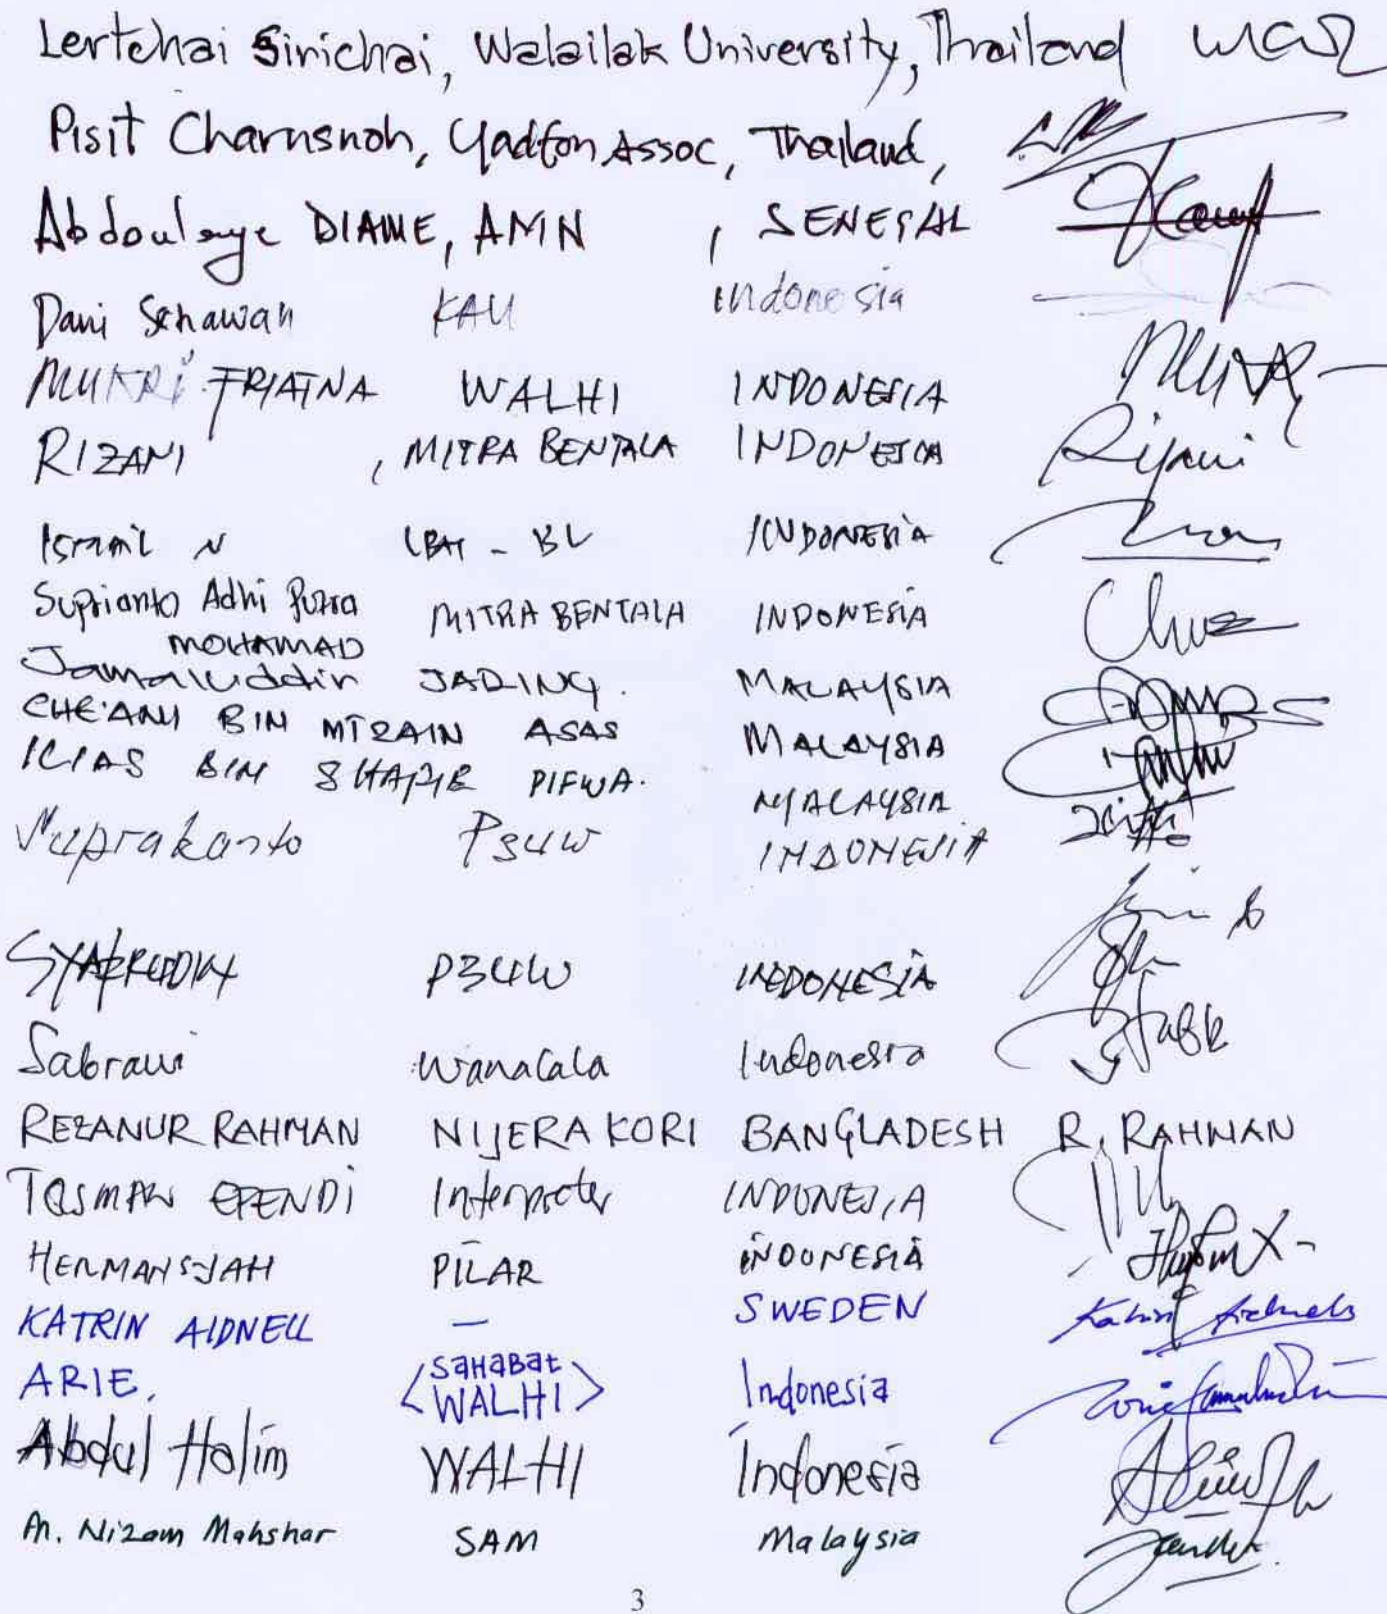 Lertchai Sirichai, Walailak University, Thailand
Pisit Charnsnoh, Yadfon Assoc, Thailand,
Abdoulaye DIAME, AMN , SENEGAL
Dani Setiawan KAU Indonesia
MUKRI FRIATNA WALHI INDONESIA
RIZANI , MITRA BENTALA INDONESIA Rizani
Ismail N - BL INDONESIA
Suprianto Adhi Putra MITRA BENTALA INDONESIA
MOHAMAD
Jamaluddin JARING. MALAYSIA
CHE'ANI BIN MT ZAIN ASAS MALAYSIA
ILIAS BIN SHAFIE PIFWA. MALAYSIA
Suprakanto P3UW INDONESIA
SYAFRUDDIN P3UW INDONESIA
Sabrawi Wanacala Indonesia
REZANUR RAHMAN NIJERA KORI BANGLADESH R. RAHMAN
TASMAN EFENDI Interpreter INDONESIA
HERMANSJAH PILAR INDONESIA
KATRIN AIDNELL — SWEDEN Katrin Aidnell
ARIE. <SAHABAT WALHI> Indonesia
Abdul Halim WALHI Indonesia
M. Nizam Mahshar SAM Malaysia
3